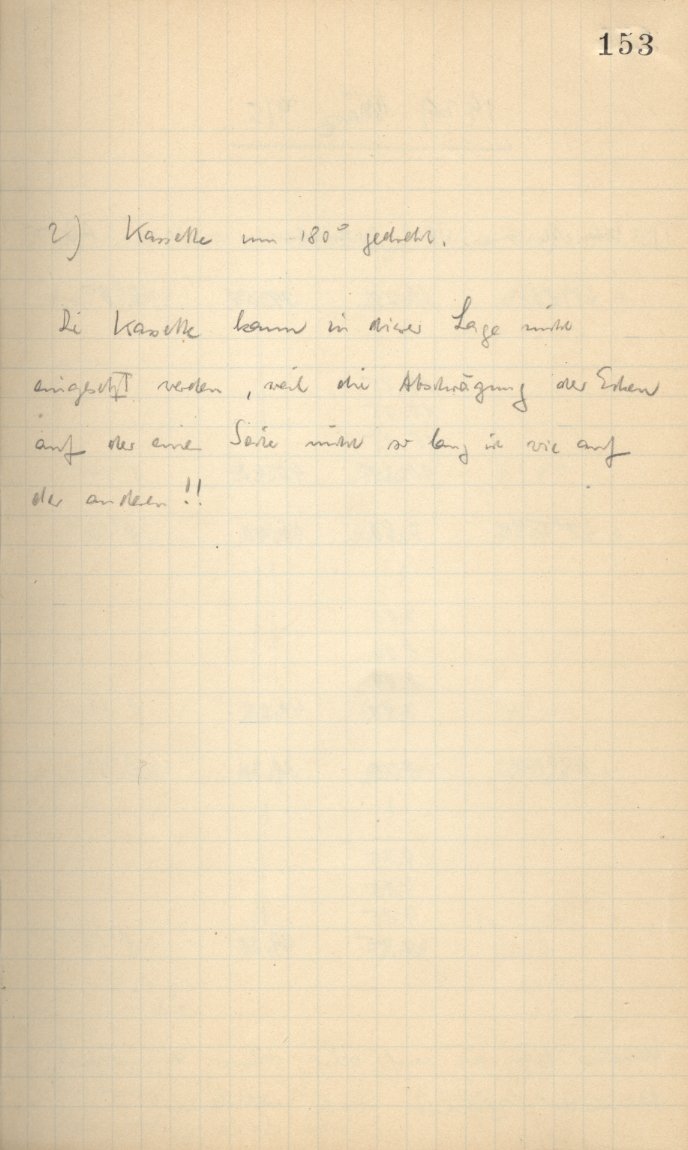 153
2) Kassette um 180° gedreht.
Die Kassette kann in dieser Lage nicht
eingesetzt werden, weil die Abschrägung der Ecken
auf der einen Seite nicht so lang ist wie auf
der anderen!!